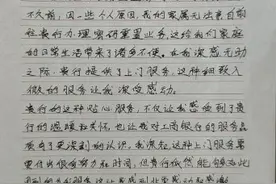 不久前，因一些个人原因，我的家属无法亲自前
往贵行办理密码重置业务，这给我们家庭
的日常生活带来了诸多不便。在我深感无助
之际，贵行提供了上门服务，这种细致入
微的服务让我深受感动。
贵行的这种贴心服务，不仅让我感受到了贵
行的温暖和关怀，也让我对工商银行的服务品
质有了更深刻的认识。我深知，这种上门服务
需要付出很多努力和时间，但贵行依然能够如此